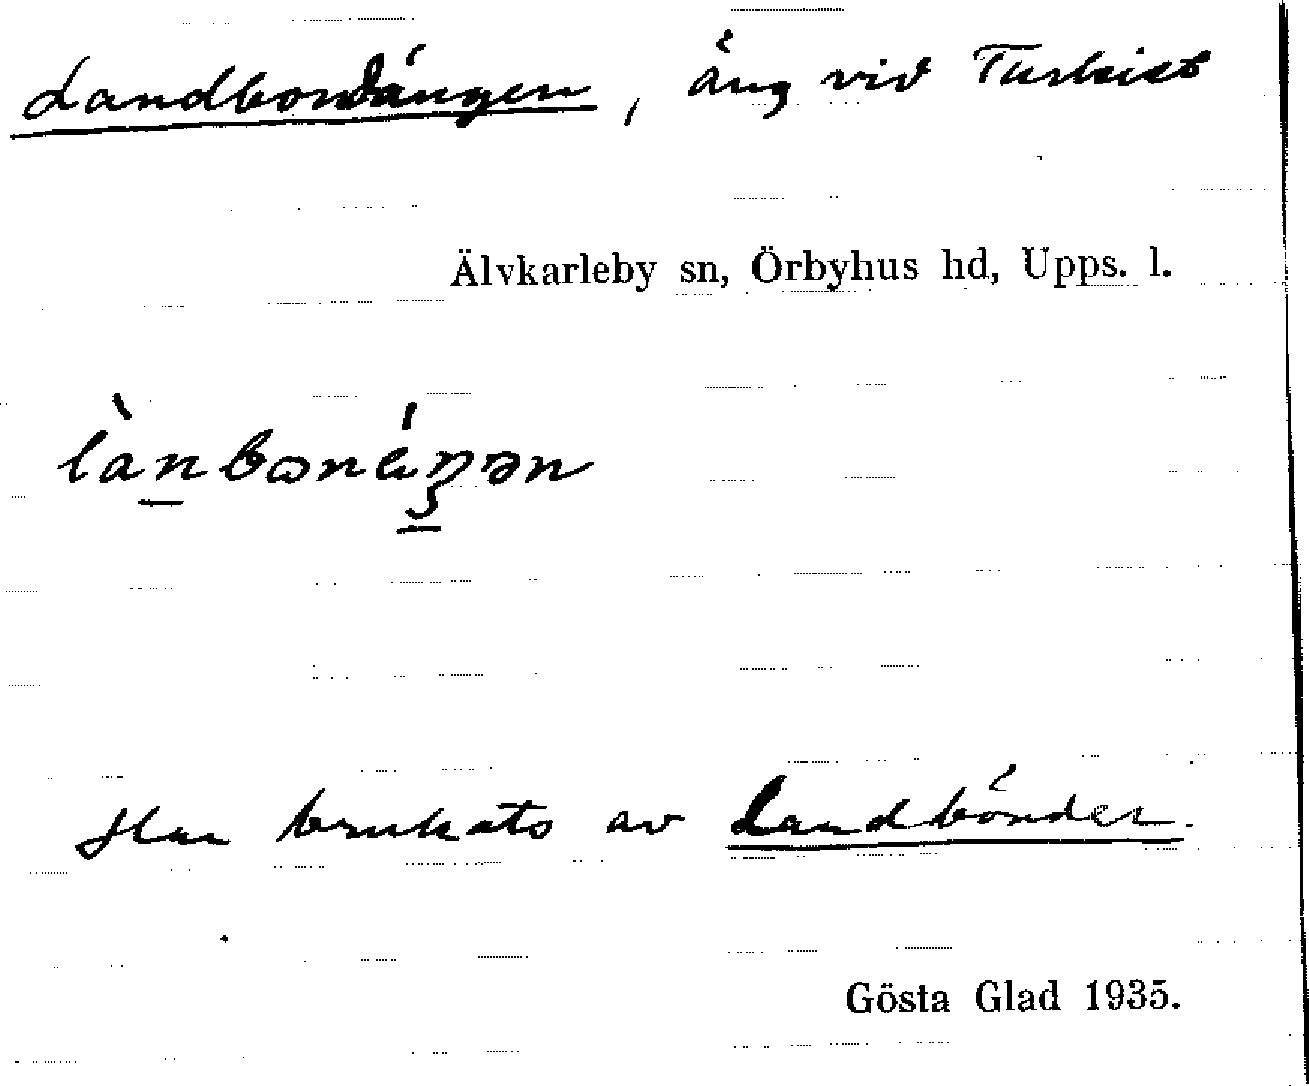 Landbondängen, äng vid
Älvkarleby sn, Örbyhus hd, Upps. l.
Har brukats av Landbönder.
Gösta Glad 1935.